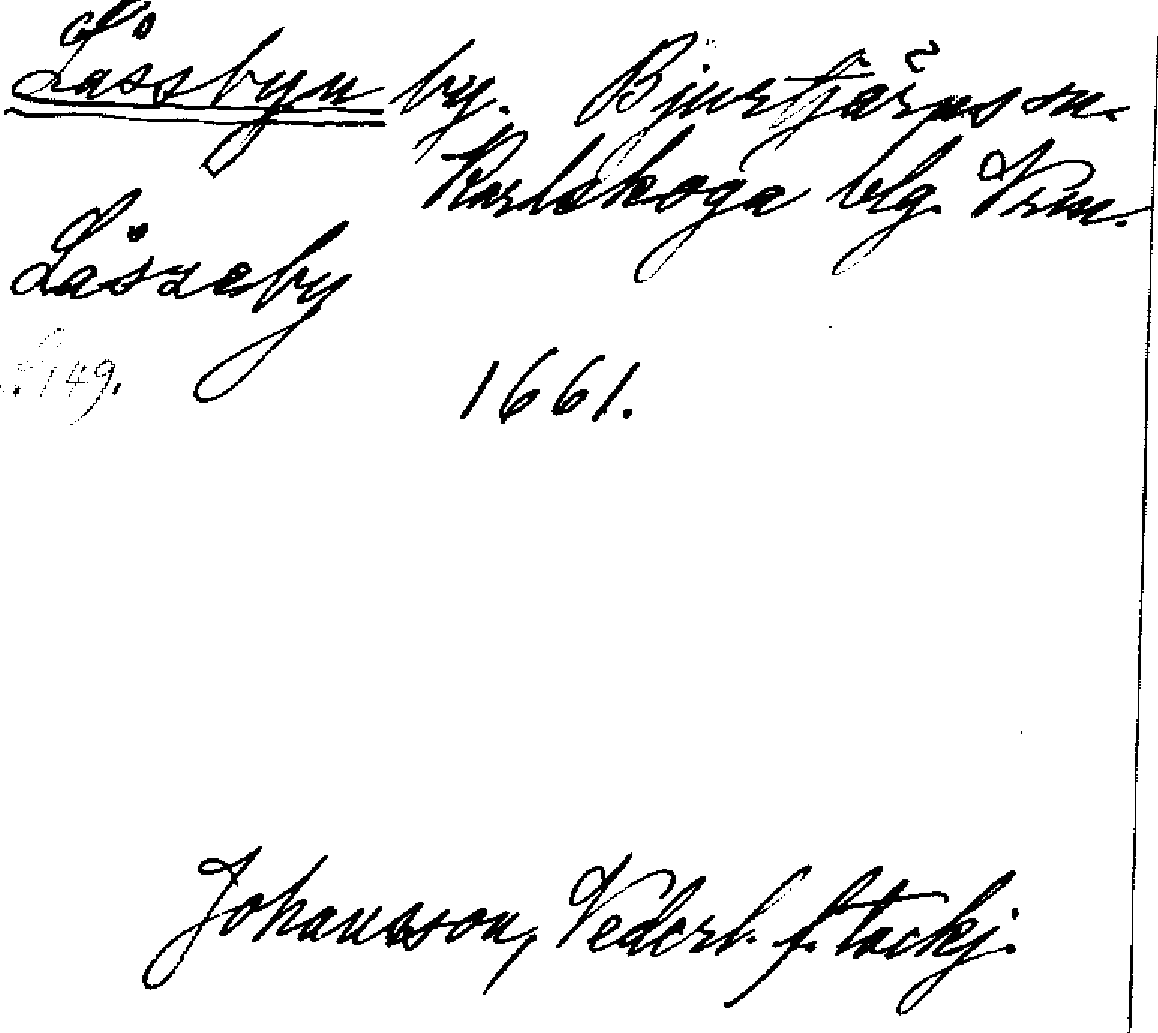 Låssbyn by. Bjurtjärns sn.
Karlskoga blg. Vrm.
Låsseby
s. 149.
1661.
Johansson, Vederl. f. tackj.